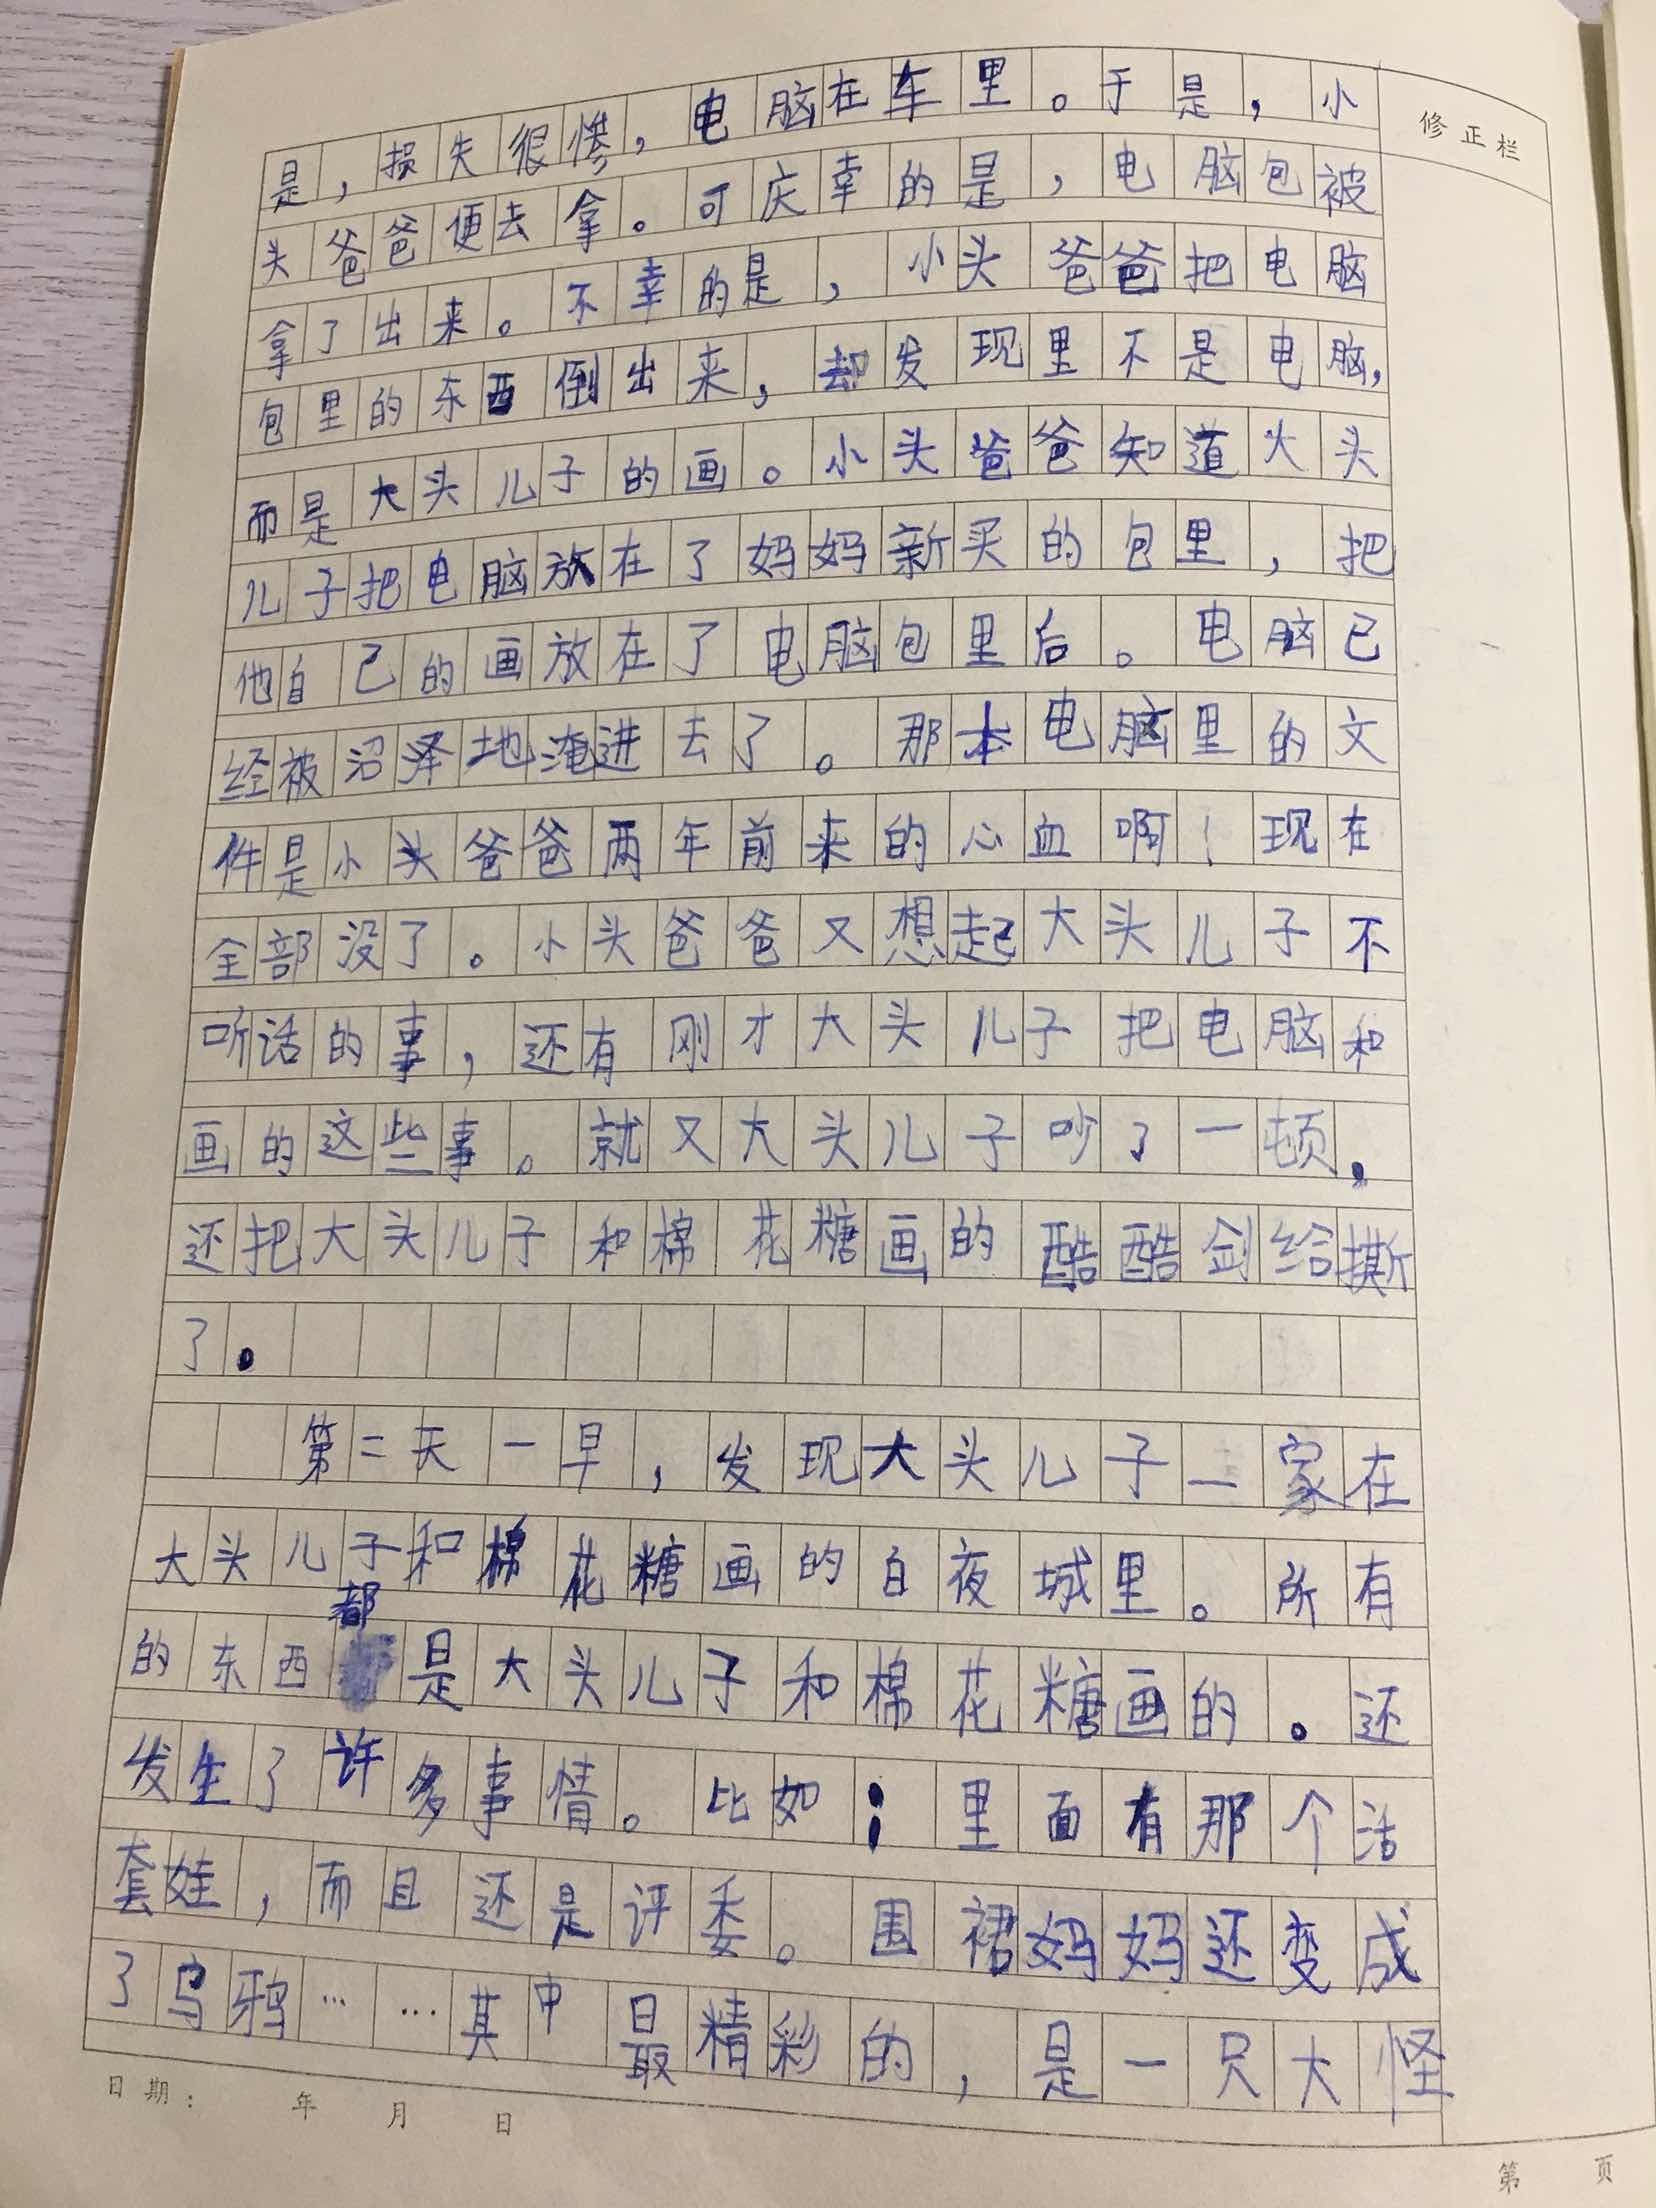 修正栏
是，损失很惨，电脑在车里。于是，小
头爸爸便去拿。可庆幸的是，电脑包被
拿了出来。不幸的是，小头爸爸把电脑
包里的东西倒出来，却发现里不是电脑，
而是大头儿子的画。小头爸爸知道大头
儿子把电脑放在了妈妈新买的包里，把
他自己的画放在了电脑包里后。电脑已
经被沼泽地淹进去了。那本电脑里的文
件是小头爸爸两年前来的心血啊！现在
全部没了。小头爸爸又想起大头儿子不
听话的事，还有刚才大头儿子把电脑和
画的这些事。就又大头儿子吵了一顿，
还把大头儿子和棉花糖画的酷酷剑给撕
了。
第二天一早，发现大头儿子一家在
大头儿子和棉花糖画的白夜城里。所有
的东西都是大头儿子和棉花糖画的。还
发生了许多事情。比如：里面有那个活
套娃，而且还是评委。围裙妈妈还变成
了乌鸦……其中最精彩的，是一只大怪
日期： 年 月 日
第 页